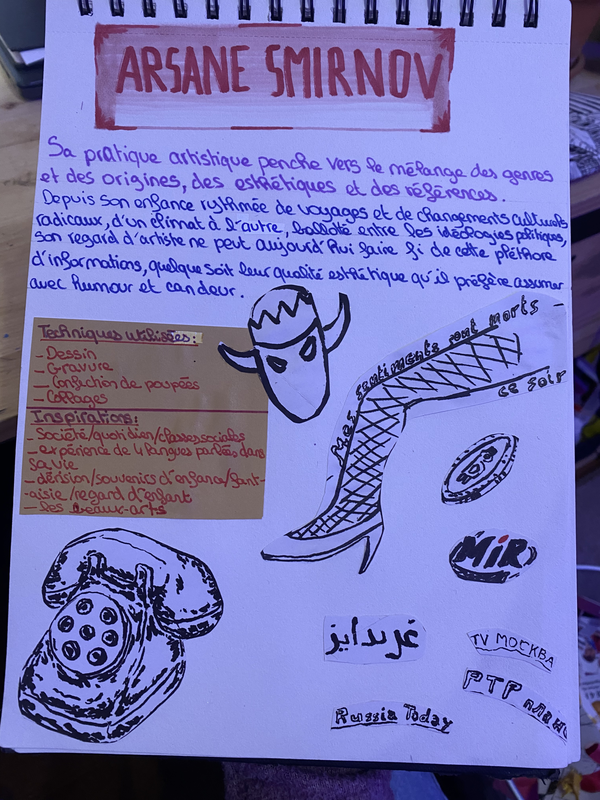 ARSANE SMIRNOV
Sa pratique artistique penche vers le mélange des genres
et des origines, des esthétiques et des références.
Depuis son enfance rythmée de voyages et de changements culturels
radicaux, d'un climat à l'autre, balloté entre les idéologies politiques,
son regard d'artiste ne peut aujourd'hui faire fi de cette pléthore
d'informations, quelque soit leur qualité esthétique qu'il préfère assumer
avec humour et candeur.
Techniques utilisées:
- Dessin
- Gravure
- Confection de poupées
- Collages
Inspirations:
- Société/quotidien/classes sociales
- expérience de 4 langues parlées dans
sa vie
- dérision/souvenirs d'enfance/fant-
-aisie/regard d'enfant
- les beaux-arts
Mes sentiments sont morts
ce soir
MiR
TV МОСКВА
РТР план
Russia Today